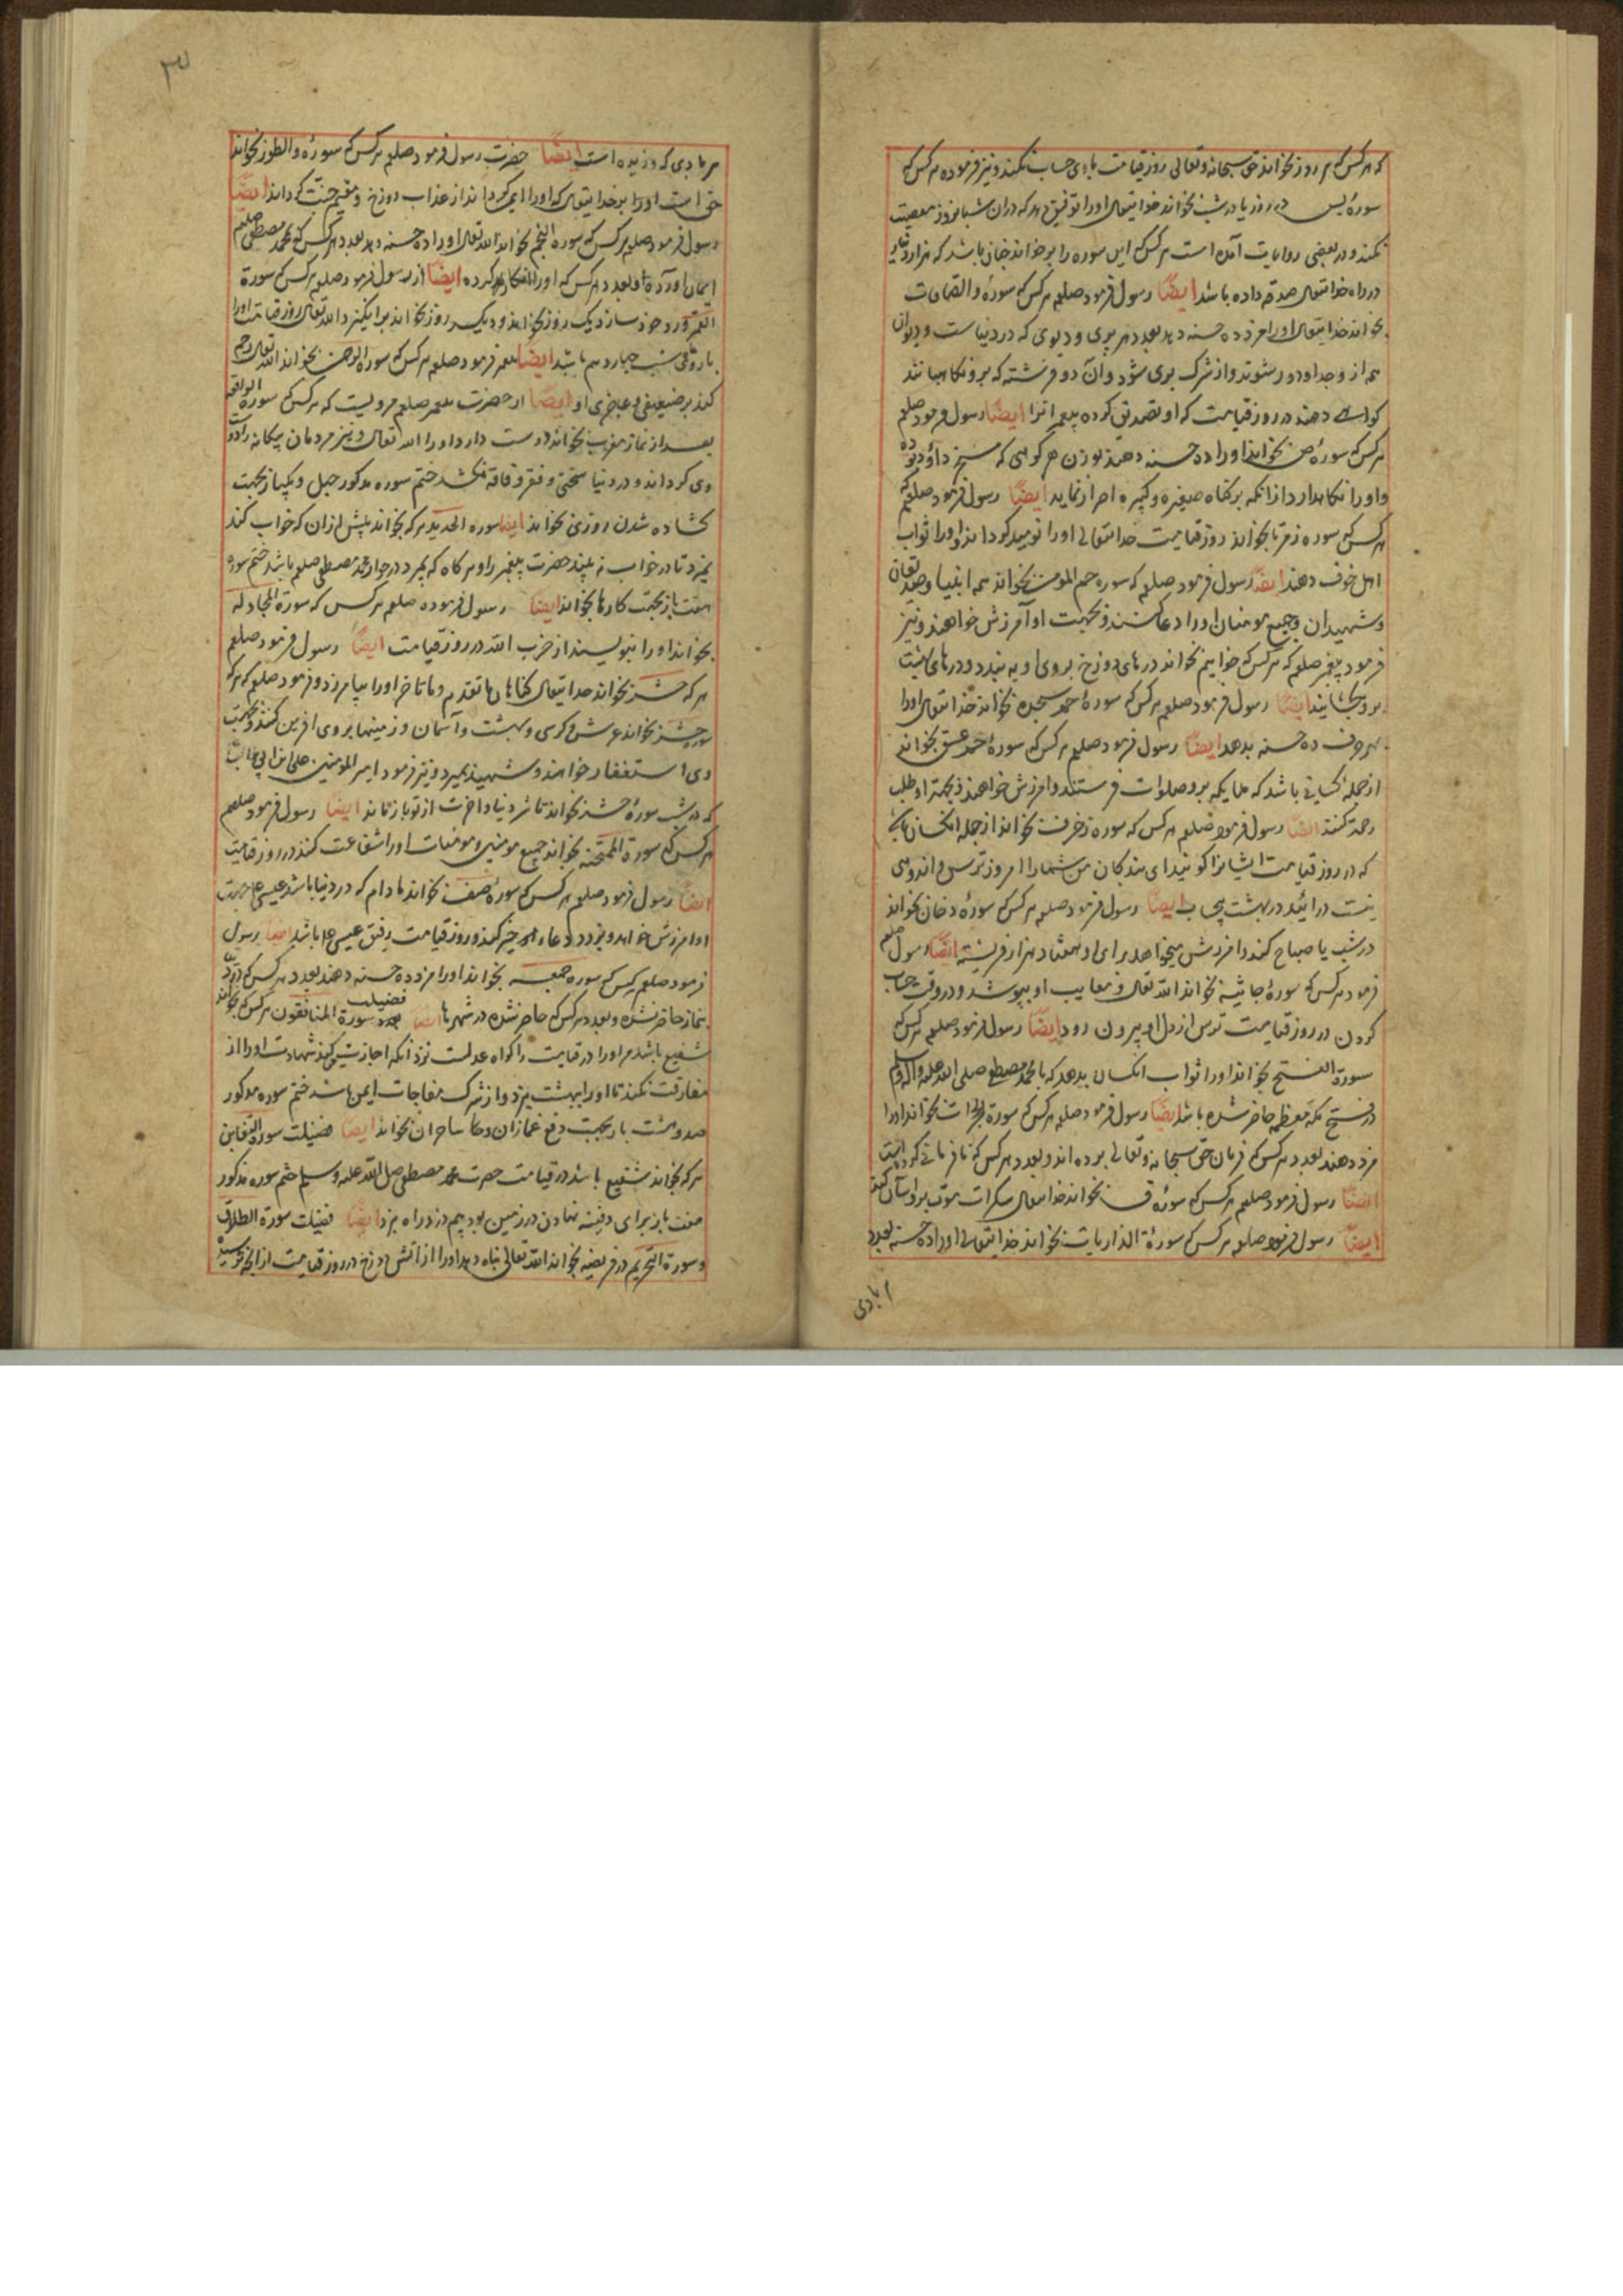 که هر کس که هر روز بخواند حق سبحانه و تعالی روز قیامت با وی حساب نکند و نیز فرموده هر کس که
سورهٔ یس در روز یا در شب بخواند خدایتعالی او را توفیق دهد که در آن شبانروز معصیت
نکند و در بعضی روایات آمده است هر کس که این سوره را برخواند چنان باشد که هزار دینار
در راه خدایتعالی صدقه داده باشد ایضًا رسول فرمود صلعم هر کس که سورهٔ والصافات
بخواند خدایتعالی او را مزد ده حسنه دهد بعدد هر پری و دیوی که در دنیاست و دیوان
همه از وجد او دور شوند و از شرک بری شود و آن دو فرشته که برو نگاهبانند
گواهی دهند در روز قیامت که او تصدیق کرده پیغمبرانرا ایضًا رسول فرمود صلعم
هر کس که سورهٔ ص بخواند او را ده حسنه دهند بوزن هر کوهی که مسخر داؤد بوده
و او را نگاهدارد از آنکه بر گناه صغیره و کبیره اصرار نماید ایضًا رسول فرمود صلعم که
هر کس که سوره زمر تا بخواند روز قیامت خدایتعالی او را نومید نگرداند و او را ثواب
اهل خوف دهند ایضًا رسول فرمود صلعم که سوره حم المومن بخواند همه انبیا و صدیقان
و شهیدان و جمیع مومنان او را دعا کنند و بجهت او آمرزش خواهند و نیز
فرمود پیغمبر صلعم که هر کس که حوامیم بخواند درهای دوزخ بر روی او به بندد و درهای بهشت
برو بگشایند ایضًا رسول فرمود صلعم هر کس که سورهٔ حم سجده بخواند خدایتعالی او را
بهر حرف ده حسنه بدهد ایضًا رسول فرمود صلعم هر کس که سورهٔ حمعسق بخواند
از جمله کسانی باشد که ملایکه برو صلوات فرستند و امرزش خواهند و بجهت او طلب
رحمة کنند ایضًا رسول فرمود صلعم هر کس که سوره زخرف بخواند از جمله انکسان باشد
که در روز قیامت ایشانرا گویند ای بندگان من شما را امروز ترس و اندوهی
نیست درائید در بهشت بیحساب ایضًا رسول فرمود صلعم هر کس که سورهٔ دخان بخواند
در شب یا صباح کند و امرزش میخواهد برای او هفتاد هزار فریشته ایضًا رسول صلعم
فرمود هر کس که سورهٔ جاثیه بخواند الله تعالی معایب او بپوشد و در وقت حساب
کردن در روز قیامت ترس از دل او بیرون رود ایضًا رسول فرمود صلعم هر کس که
سورة الفتح بخواند او را ثواب انکسان بدهد که با محمد مصطفی صلی الله علیه و اله وسلم
در فتح مکه معظمه حاضر شده باشد ایضًا رسول فرمود صلعم هر کس که سورة الحجرات بخواند او را
مزد دهند بعدد هر کس که فرمان حق سبحانه و تعالی برده اند و بعدد هر کس که نافرمانی کرده است
ایضًا رسول فرمود صلعم هر کس که سورهٔ ق بخواند خدایتعالی سکرات موت برو آسان کند
ایضًا رسول فرمود صلعم هر کس که سورهٔ الذاریات بخواند خدایتعالی او را ده حسنه بعدد
هر بادی
۳
هر بادی که وزیده است ایضًا حضرت رسول فرمود صلعم هر کس که سورهٔ والطور بخواند
حق است او را بر خدایتعالی که او را ایمن گرداند از عذاب دوزخ و مقیم جنت گرداند ایضًا
رسول فرمود صلعم هر کس که سوره النجم بخواند الله تعالی او را ده حسنه دهد بعدد هر کس که بمحمد مصطفی صلعم
ایمان آورده و بعدد هر کس که او را انکار کرده ایضًا رسول فرمود صلعم هر کس که سورة
القمر ورد خود سازد یک روز بخواند و دیگر روز نخواند برانگیزد الله تعالی روز قیامت او را
با روئی شب چهاردهم باشد ایضًا پیغمبر فرمود صلعم هر کس که سوره الرحمن بخواند الله تعالی رحم
کند بر ضعیفی و عاجزی او ایضًا از حضرت پیغمبر صلعم مرویست که هر کس سورهٔ الواقعه
بعد از نماز مغرب بخواند دوست دارد او را الله تعالی و نیز مردمان بیگانه را دوست
وی گرداند و در دنیا سختی و فقر و فاقه نکشد ختم سوره مذکور چهل و یکبار بجهت
گشاده شدن روزی بخواند ایضًا سوره الحدید هر که بخواند پیش از آن که خواب کند
نمیرد تا در خواب نه بیند حضرت پیغمبر را و هر گاه که بمیرد در جوار محمد مصطفی صلعم باشد ختم سوره
هفت بار بجهت کارها بخواند ایضًا رسول فرموده صلعم هر کس که سورة المجادله
بخواند او را بنویسند از حزب الله در روز قیامت ایضًا رسول فرمود صلعم
هر که حشر بخواند خدایتعالی گناهان ما تقدم و ما تاخر او را بیامرزد و فرمود صلعم که هر که
سوره حشر بخواند عرش و کرسی و بهشت و آسمان و زمینها بر وی آفرین کنند و بجهت
وی استغفار خواهند و شهید بمیرد و نیز فرمود امیر المؤمنین علی ابن ابی طالب
که در شب سورهٔ حشر بخواند تا شر دنیا و اخرت از تو باز ماند ایضًا رسول فرمود صلعم
هر کس که سورة الممتحنه بخواند جمیع مومنین و مومنات او را شفاعت کنند در روز قیامت
ایضًا رسول فرمود صلعم هر کس که سورهٔ صف بخواند مادام که در دنیا باشد عیسی ع بجهت
او امرزش خواهد و دعاء خیر کند و روز قیامت رفیق عیسی ع باشد ایضًا رسول
فرمود صلعم هر کس که سوره جمعه بخواند او را مزد ده حسنه دهند بعدد هر کس که
بنماز حاضر شده و بعدد هر کس که حاضر نشده در شهرها ایضًا فضیلت سورة المنافقون هر کس که بخواند
شفیع باشد مر او را در قیامت و گواه عدلست شهادت او را از
مفارقت نکند تا او را ببهشت برد و از شرک مفاجات ایمن باشد ختم سوره مذکور
صد و شصت بار بجهت دفع غمازان و ساحران بخواند ایضًا فضیلت سورة التغابن
هر که بخواند شفیع باشد در قیامت حضرت محمد مصطفی صلی الله علیه وسلم ختم سوره مذکور
هفت بار برای دفینه نهادن در زمین بود بیم دزد راه برد ایضًا فضیلت سورة الطلاق
و سورة التحریم در فریضه بخواند الله تعالی پناه دهد او را از آتش دوزخ در روز قیامت